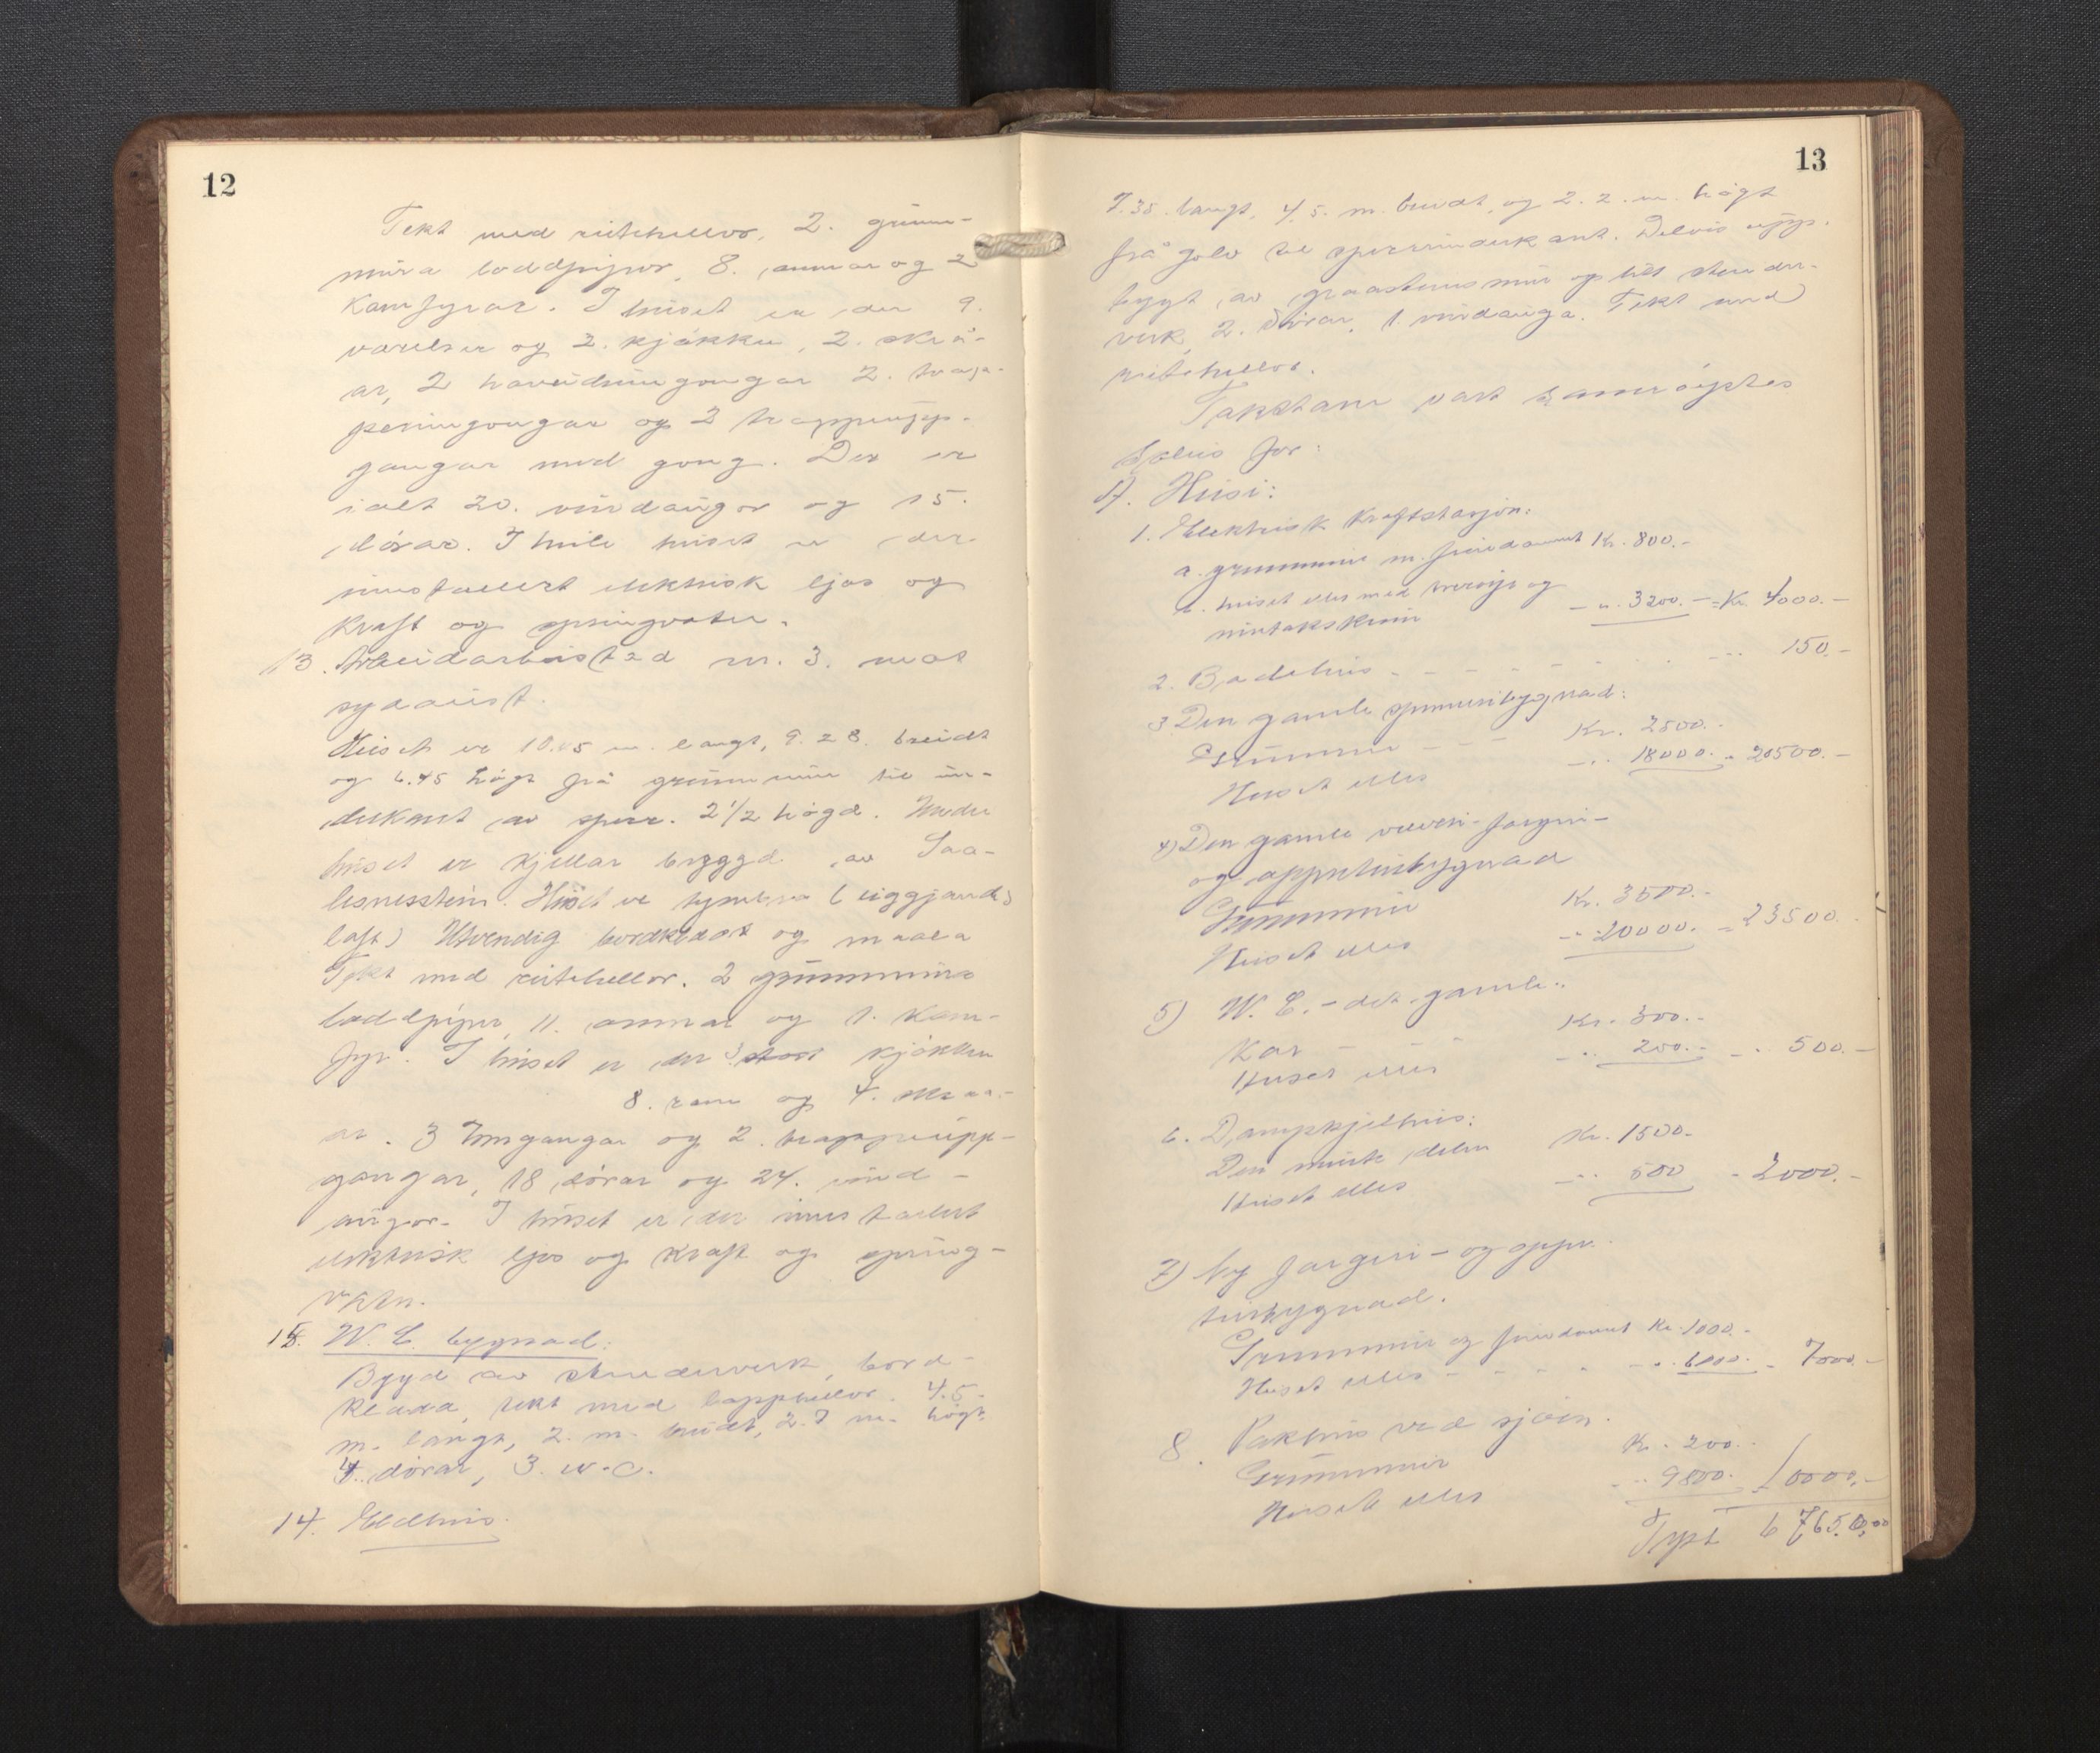 12
Tekt med rutehellor, 2. grunn-
mura loddpipor, 8. omnar og 2
Kamfyrar. I huset er der 9.
varelser og 2. kjøkken, 2. skå-
ar, 2 hovudinngongar 2. trap-
peinngongar og 2 trappeupp-
gangar med gong. Der er
ialt 20. vindaugor og 15.
dörar. I heile huset er der
innstallert elektrisk ljos og
Kraft og springvatn.
13. Arbeidarbustad nr. 3. mot
sydaust.
Huset er 10.05 m. langt, 9.28. breidt
og 6.45 högt frå grunnmur til un-
derkant av sperr. 2 1/2 högd. Under
huset er kjellar byggd av Saa-
lesnesstein. Huset er tymbra (liggjande
laft) Utvendig bordkledt og maala
Tekt med rutehellor. 2 grunnmura
loddpipor, 11. omnar og 1. Kam-
fyr. I huset er der 3 stor kjökken
8. rom og 4. skaa-
ar. 3 Inngangar og 2. trappeupp-
gangar, 18 dörar og 24. vind-
augor. I huset er der innstallert
elektrisk ljos og kraft og spring-
vatn.
15. W. C. bygnad:
Bygd av stenderverk, bord-
kledd, tekt med lapphellor. 4.5
m. langt, 2. m. breidt, 2.7 m. högt.
4. dörar, 3. w.c.
14. Eldhus.
13
7.35. langt, 4.5. m. breidt, og 2.2. m. högt
frå golv til sperrunderkant. Delvis upp-
bygt av graasteinsmur og litt stender-
verk, 2. dörar, 1. vindauga. Tekt med
rutehellor.
Takstane vart samröystes
for:
A. Husi:
1. Elektrisk Kraftstasjon:
a. grunnmur m. fundament Kr. 800.-
b. huset elles med og
inntakskum - " 3200. - = Kr. 4000.-
2. Badehus - - - - - - - 150.-
3. Den gamle spinneribygnad:
Grunnmur - - - Kr. 2500.-
Huset elles - " 18000. - 20500.-
4) Den gamle veveri- fargeri-
og appreturbygnad
Grunnmur Kr. 3500.-
Huset elles - " 20000. - 23500.-
5) W. C. - det gamle:
Kar - - - Kr. 300.-
Huset elles - " 200.- - " 500.-
6. Dampkjelhus:
Den murte delen Kr. 1500.-
Huset elles - " 500 - 2000.-
7) Ny fargeri- og appre-
turbygnad.
Grunnmur og fundament Kr. 1000.-
Huset elles - - - - " 6000. - 7000.-
8. Pakhus ved sjöen.
Grunnmur Kr. 200.-
Huset elles - " 9800. - 10000.-
Flyt 67650,00